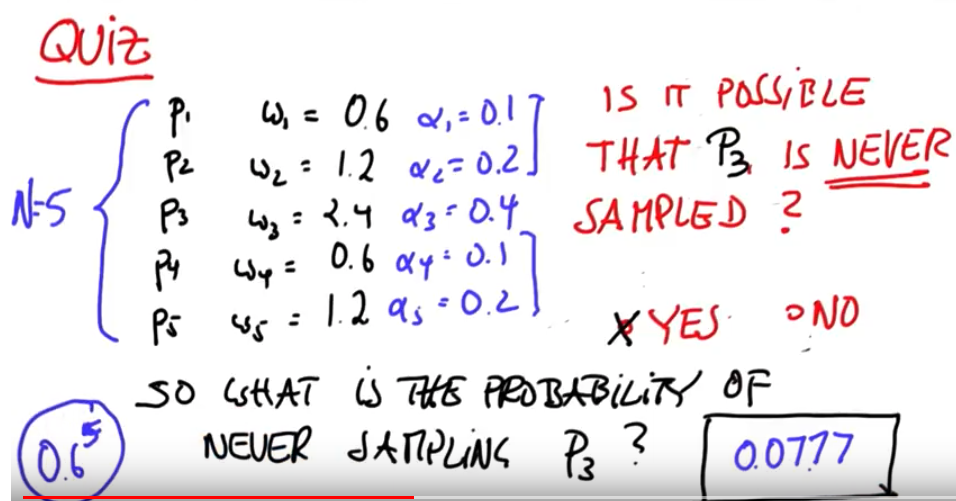 QUIZ
N=5
P1 W1 = 0.6 α1 = 0.1
P2 W2 = 1.2 α2 = 0.2
P3 W3 = 2.4 α3 = 0.4
P4 W4 = 0.6 α4 = 0.1
P5 W5 = 1.2 α5 = 0.2
IS IT POSSIBLE
THAT P3 IS NEVER
SAMPLED ?
X YES O NO
SO WHAT IS THE PROBABILITY OF
NEVER SAMPLING P3 ?
0.6^5
0.0777